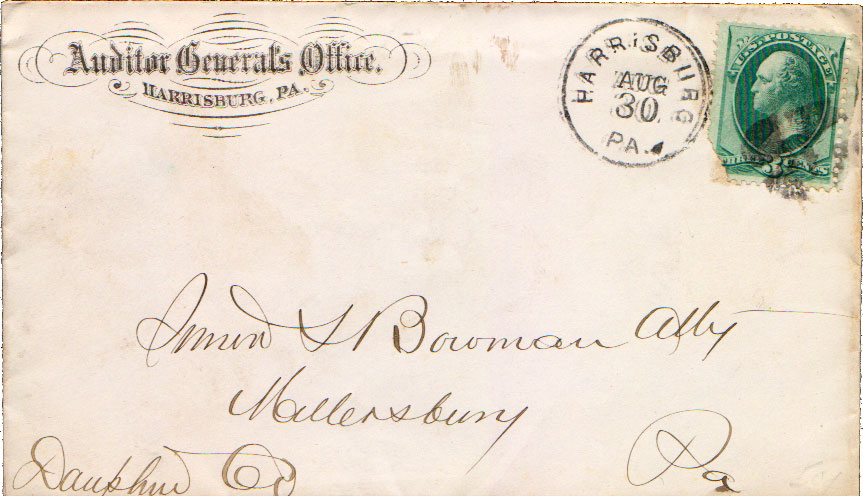 Auditor General's Office.
HARRISBURG, PA.
HARRISBURG
AUG
30
PA.
U.S. POSTAGE
THREE 3 CENTS
S L Bowman Atty
Millersburg
Dauphin Co Pa